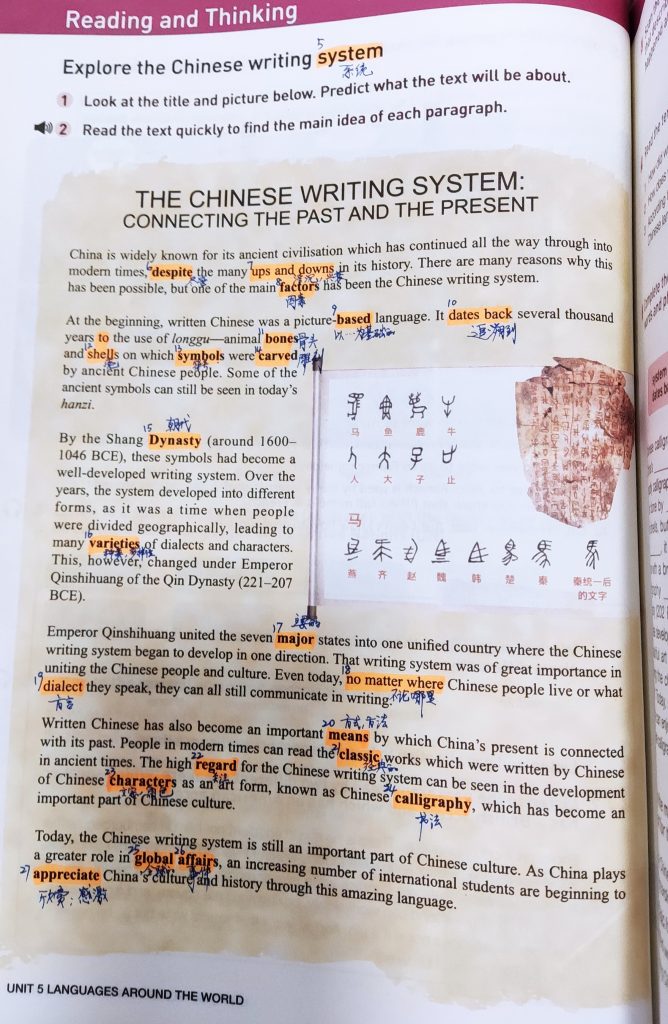 Reading and Thinking
5
Explore the Chinese writing system
系统
1 Look at the title and picture below. Predict what the text will be about.
2 Read the text quickly to find the main idea of each paragraph.
THE CHINESE WRITING SYSTEM:
CONNECTING THE PAST AND THE PRESENT
China is widely known for its ancient civilisation which has continued all the way through into
6 7
modern times, despite the many ups and downs in its history. There are many reasons why this
8
has been possible, but one of the main factors has been the Chinese writing system.
因素
9 10
At the beginning, written Chinese was a picture-based language. It dates back several thousand
以…为基础的 追溯到
11
years to the use of longgu—animal bones
骨头
12 13 14
and shells on which symbols were carved
by ancient Chinese people. Some of the
ancient symbols can still be seen in today's
hanzi.
马 鱼 鹿 牛
人 大 子 止
马
燕 齐 赵 魏 韩 楚 秦 秦统一后
的文字
15 朝代
By the Shang Dynasty (around 1600–
1046 BCE), these symbols had become a
well-developed writing system. Over the
years, the system developed into different
forms, as it was a time when people
were divided geographically, leading to
16
many varieties of dialects and characters.
This, however, changed under Emperor
Qinshihuang of the Qin Dynasty (221–207
BCE).
17 主要的
Emperor Qinshihuang united the seven major states into one unified country where the Chinese
writing system began to develop in one direction. That writing system was of great importance in
18
uniting the Chinese people and culture. Even today, no matter where Chinese people live or what
19
dialect they speak, they can all still communicate in writing.
方言 不论哪里
20 方式,方法
Written Chinese has also become an important means by which China's present is connected
21
with its past. People in modern times can read the classic works which were written by Chinese
22
in ancient times. The high regard for the Chinese writing system can be seen in the development
23 24
of Chinese characters as an art form, known as Chinese calligraphy, which has become an
important part of Chinese culture.
书法
Today, the Chinese writing system is still an important part of Chinese culture. As China plays
25 26
a greater role in global affairs, an increasing number of international students are beginning to
27
appreciate China's culture and history through this amazing language.
欣赏;感激
UNIT 5 LANGUAGES AROUND THE WORLD